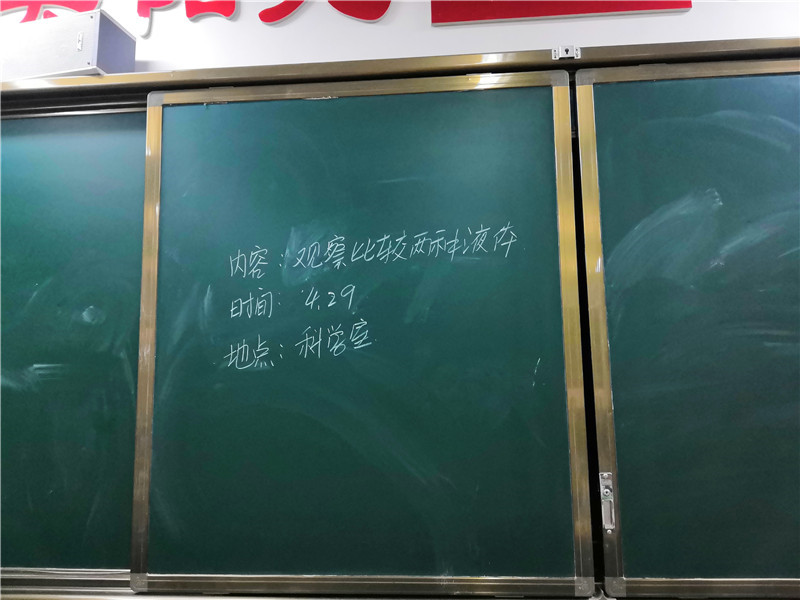 内容：观察比较两种液体
时间：4.29
地点：科学室